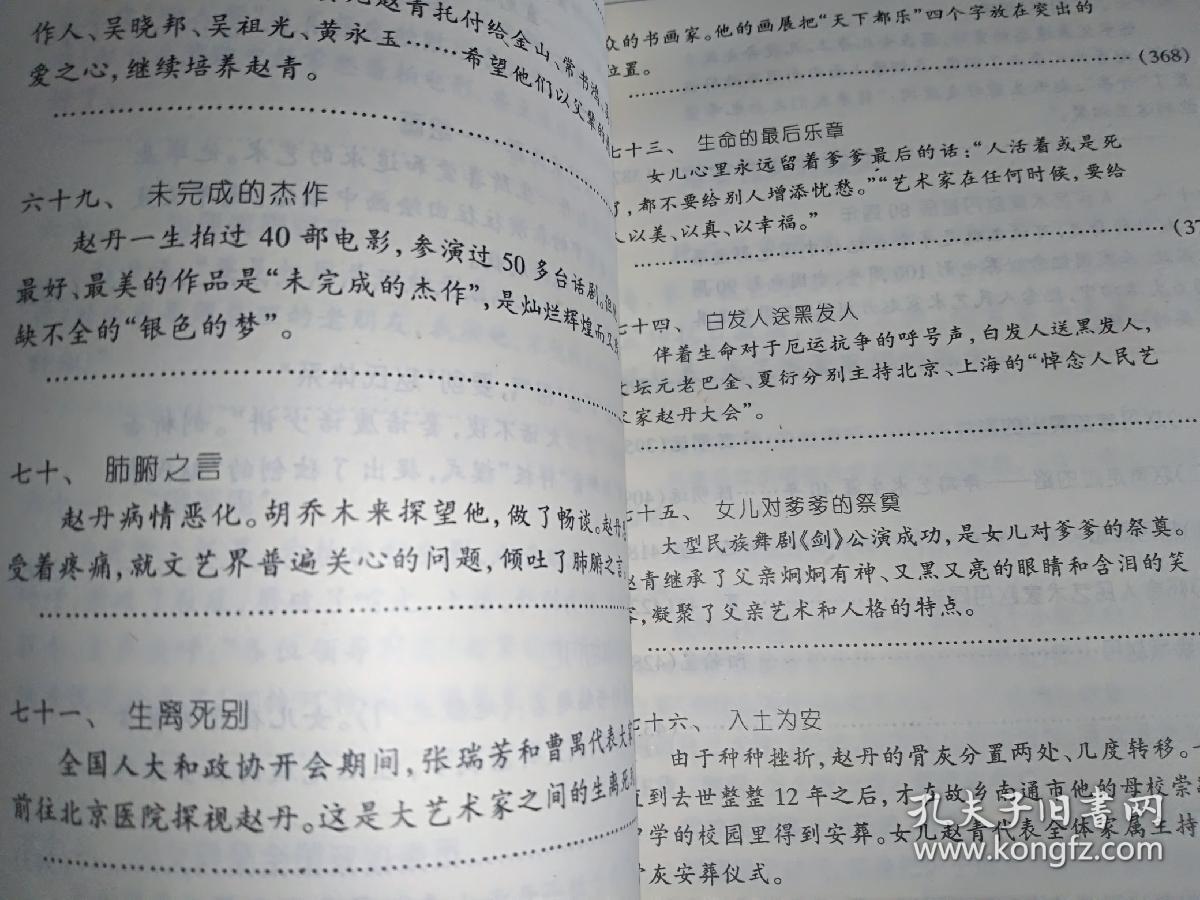 赵青托付给金山、常书鸿、
作人、吴晓邦、吴祖光、黄永玉……希望他们以父辈的
爱之心，继续培养赵青。
六十九、 未完成的杰作
赵丹一生拍过 40 部电影，参演过 50 多台话剧。但
最好、最美的作品是“未完成的杰作”，是灿烂辉煌而又
缺不全的“银色的梦”。
七十、 肺腑之言
赵丹病情恶化。胡乔木来探望他，做了畅谈。赵丹
受着疼痛，就文艺界普遍关心的问题，倾吐了肺腑之言
七十一、 生离死别
全国人大和政协开会期间，张瑞芳和曹禺代表大
前往北京医院探视赵丹。这是大艺术家之间的生离死
众的书画家。他的画展把“天下都乐”四个字放在突出的
位置。
(368)
七十三、 生命的最后乐章
女儿心里永远留着爹爹最后的话：“人活着或是死
了，都不要给别人增添忧愁。”“艺术家在任何时候，要给
人以美、以真、以幸福。”
(37
七十四、 白发人送黑发人
伴着生命对于厄运抗争的呼号声，白发人送黑发人，
文坛元老巴金、夏衍分别主持北京、上海的“悼念人民艺
术家赵丹大会”。
七十五、 女儿对爹爹的祭奠
大型民族舞剧《剑》公演成功，是女儿对爹爹的祭奠。
赵青继承了父亲炯炯有神、又黑又亮的眼睛和含泪的笑
容，凝聚了父亲艺术和人格的特点。
七十六、 入土为安
由于种种挫折，赵丹的骨灰分置两处、几度转移。一
直到去世整整 12 年之后，才在故乡南通市他的母校崇
中学的校园里得到安葬。女儿赵青代表全体家属主持
骨灰安葬仪式。
孔夫子旧書网
www.kongfz.com